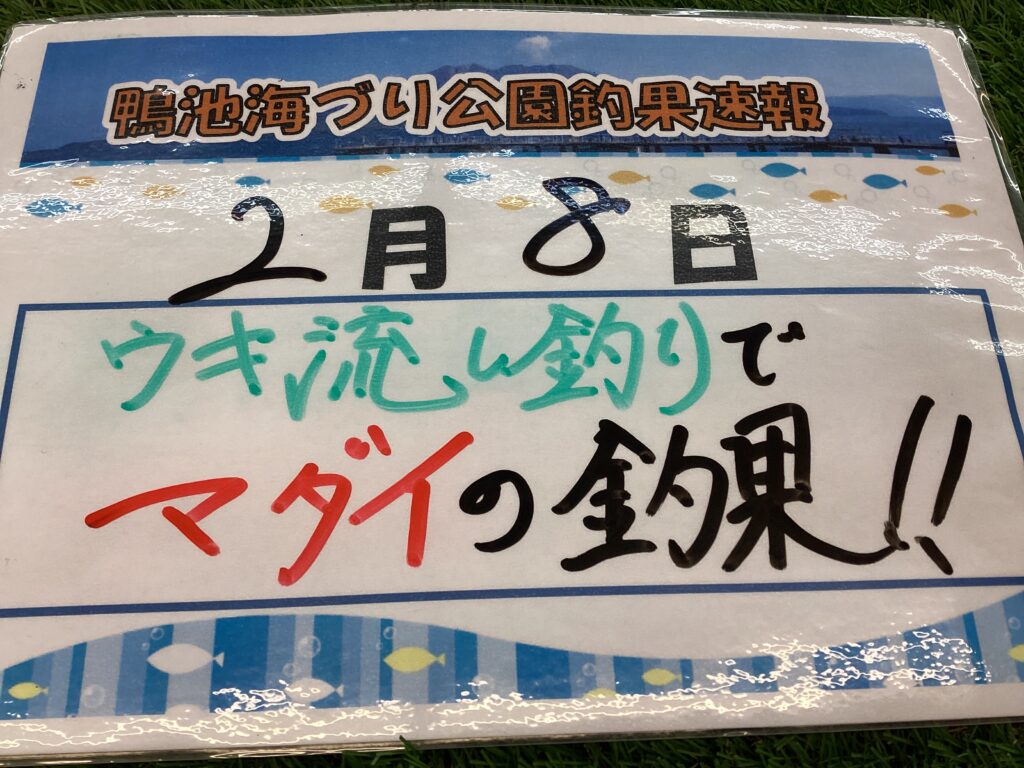 鴨池海づり公園釣果速報
2月8日
ウキ流し釣りで
マダイの釣果!!